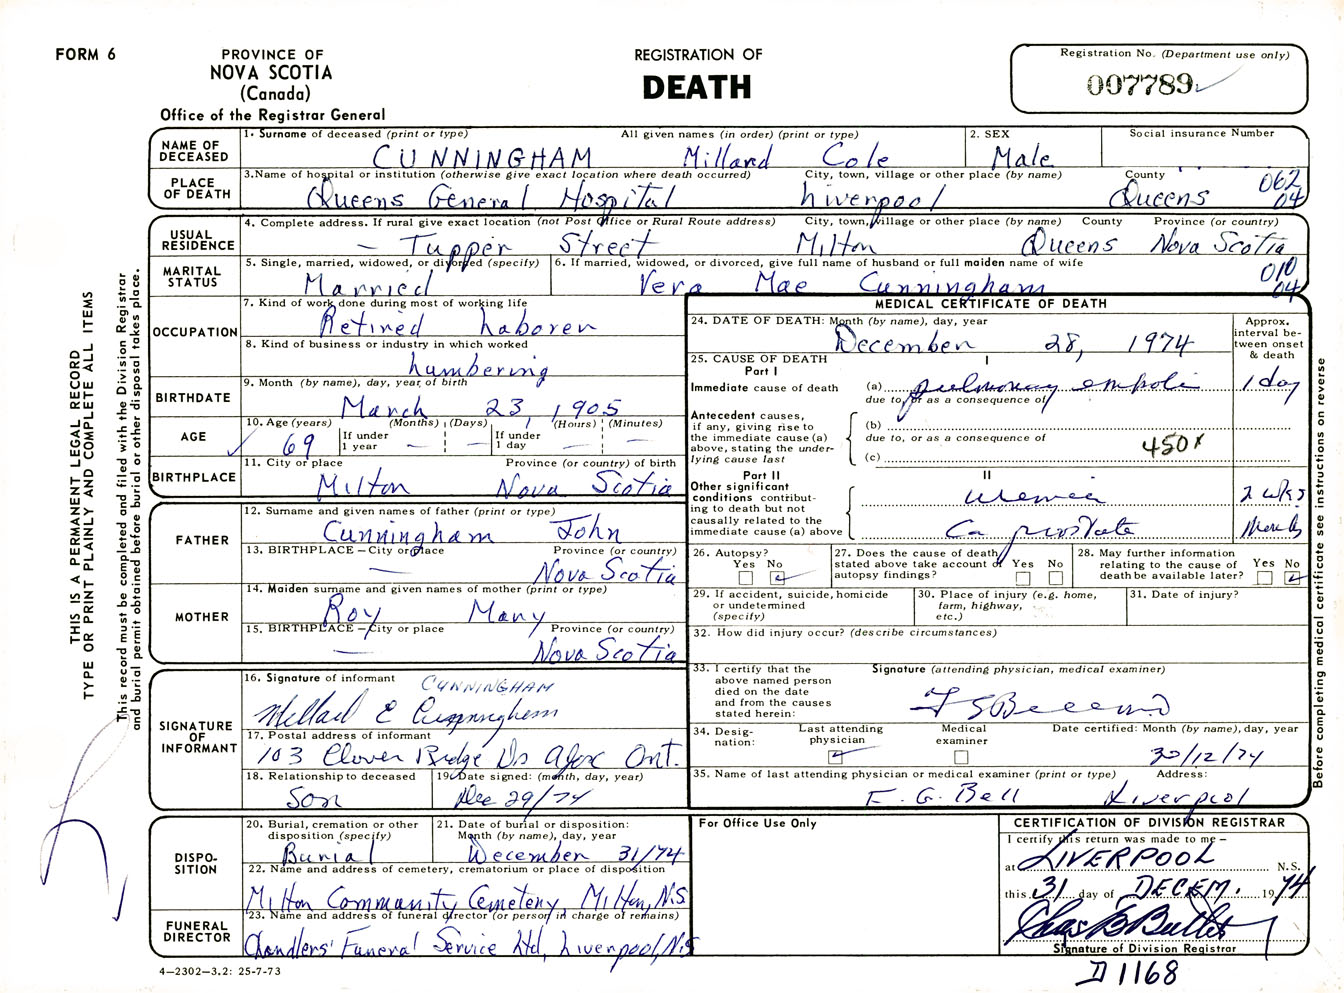 FORM 6
PROVINCE OF
NOVA SCOTIA
(Canada)
Office of the Registrar General
REGISTRATION OF
DEATH
Registration No. (Department use only)
007789
THIS IS A PERMANENT LEGAL RECORD
TYPE OR PRINT PLAINLY AND COMPLETE ALL ITEMS
This record must be completed and filed with the Division Registrar
and burial permit obtained before burial or other disposal takes place.
NAME OF DECEASED
1. Surname of deceased (print or type) All given names (in order) (print or type) 2. SEX Social insurance Number
CUNNINGHAM Millard Cole Male
PLACE OF DEATH
3. Name of hospital or institution (otherwise give exact location where death occurred) City, town, village or other place (by name) County
Queens General Hospital Liverpool Queens 062 04
USUAL RESIDENCE
4. Complete address. If rural give exact location (not Post Office or Rural Route address) City, town, village or other place (by name) County Province (or country)
— Tupper Street Milton Queens Nova Scotia
MARITAL STATUS
5. Single, married, widowed, or divorced (specify) 6. If married, widowed, or divorced, give full name of husband or full maiden name of wife
Married Vera Mae Cunningham 010 04
OCCUPATION
7. Kind of work done during most of working life
Retired Laborer
8. Kind of business or industry in which worked
Lumbering
BIRTHDATE
9. Month (by name), day, year, of birth
March 23, 1905
AGE
10. Age (years) (Months) (Days) (Hours) (Minutes)
69 If under 1 year — — If under 1 day — —
BIRTHPLACE
11. City or place Province (or country) of birth
Milton Nova Scotia
FATHER
12. Surname and given names of father (print or type)
Cunningham John
13. BIRTHPLACE — City or place Province (or country)
— Nova Scotia
MOTHER
14. Maiden surname and given names of mother (print or type)
Roy Mary
15. BIRTHPLACE — City or place Province (or country)
— Nova Scotia
SIGNATURE OF INFORMANT
16. Signature of informant CUNNINGHAM
Millard E Cunningham
17. Postal address of informant
103 Clover Ridge Dr Ajax Ont.
18. Relationship to deceased 19. Date signed: (month, day, year)
Son Dec 29/74
DISPOSITION
20. Burial, cremation or other disposition (specify) 21. Date of burial or disposition: Month (by name), day, year
Burial December 31/74
22. Name and address of cemetery, crematorium or place of disposition
Milton Community Cemetery, Milton, N.S.
FUNERAL DIRECTOR
23. Name and address of funeral director (or person in charge of remains)
Chandlers' Funeral Service Ltd, Liverpool, N.S
4—2302—3.2: 25-7-73
MEDICAL CERTIFICATE OF DEATH
24. DATE OF DEATH: Month (by name), day, year
December 28, 1974
Approx. interval between onset & death
25. CAUSE OF DEATH I
Part I
Immediate cause of death (a) pulmonary emboli 1 day
due to, or as a consequence of
Antecedent causes, if any, giving rise to the immediate cause (a) above, stating the underlying cause last
(b)
due to, or as a consequence of
450X
(c)
Part II II
Other significant conditions contributing to death but not causally related to the immediate cause (a) above
uremia 2 wks
Ca prostate Months
26. Autopsy? Yes No
27. Does the cause of death stated above take account of autopsy findings? Yes No
28. May further information relating to the cause of death be available later? Yes No
29. If accident, suicide, homicide or undetermined (specify)
30. Place of injury (e.g. home, farm, highway, etc.)
31. Date of injury?
32. How did injury occur? (describe circumstances)
33. I certify that the above named person died on the date and from the causes stated herein:
Signature (attending physician, medical examiner)
34. Designation: Last attending physician Medical examiner Date certified: Month (by name), day, year
30/12/74
35. Name of last attending physician or medical examiner (print or type) Address:
F. G. Bell Liverpool
Before completing medical certificate see instructions on reverse
For Office Use Only
CERTIFICATION OF DIVISION REGISTRAR
I certify this return was made to me —
at LIVERPOOL N.S.
this 31 day of DECEM. 1974
Chas B Butler
Signature of Division Registrar
D 1168